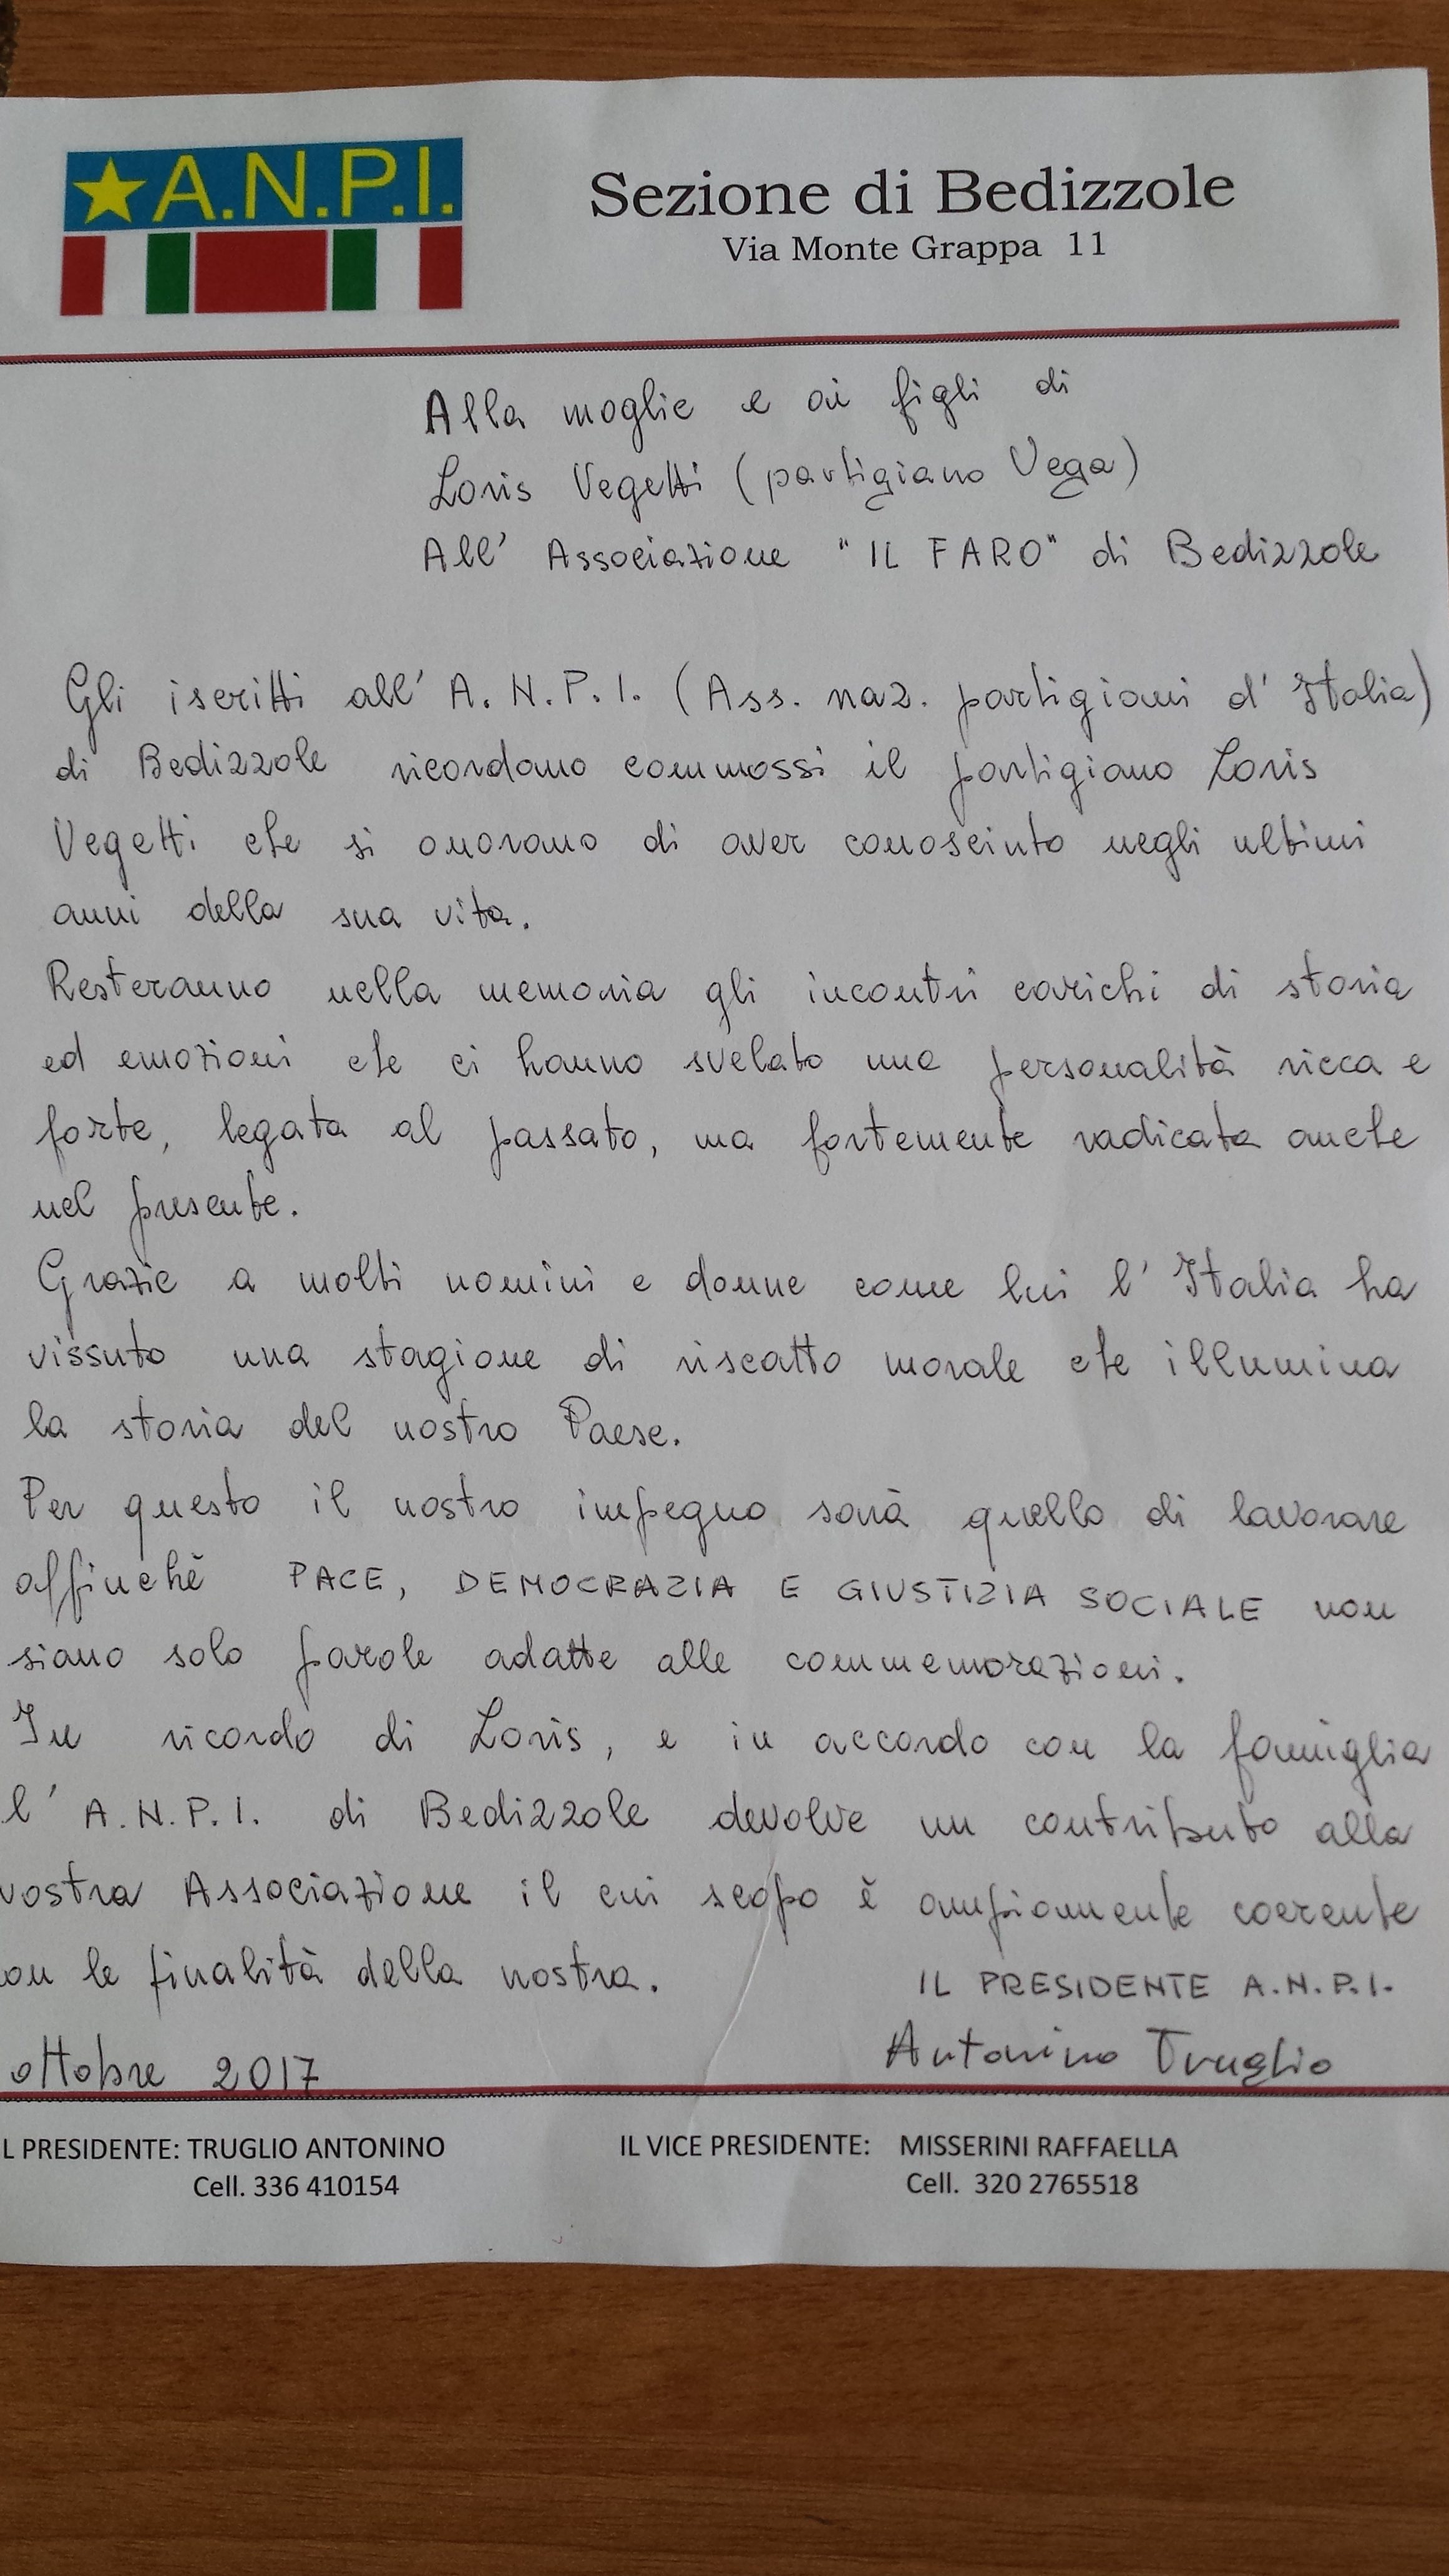 ★A.N.P.I.
Sezione di Bedizzole
Via Monte Grappa 11
Alla moglie e ai figli di
Loris Vegetti (partigiano Vega)
All' Associazione "IL FARO" di Bedizzole
Gli iscritti all' A.N.P.I. (Ass. naz. partigiani d' Italia)
di Bedizzole ricordano commossi il partigiano Loris
Vegetti che si onorano di aver conosciuto negli ultimi
anni della sua vita.
Resteranno nella memoria gli incontri carichi di storia
ed emozioni che ci hanno svelato una personalità ricca e
forte, legata al passato, ma fortemente radicata anche
nel presente.
Grazie a molti uomini e donne come lui l' Italia ha
vissuto una stagione di riscatto morale che illumina
la storia del nostro Paese.
Per questo il nostro impegno sarà quello di lavorare
affinchè PACE, DEMOCRAZIA E GIUSTIZIA SOCIALE non
siano solo parole adatte alle commemorazioni.
In ricordo di Loris, e in accordo con la famiglia
l' A.N.P.I. di Bedizzole devolve un contributo alla
vostra Associazione il cui scopo è ampiamente coerente
on le finalità della nostra.
IL PRESIDENTE A.N.P.I.
Antonino Truglio
ottobre 2017
L PRESIDENTE: TRUGLIO ANTONINO
Cell. 336 410154
IL VICE PRESIDENTE: MISSERINI RAFFAELLA
Cell. 320 2765518